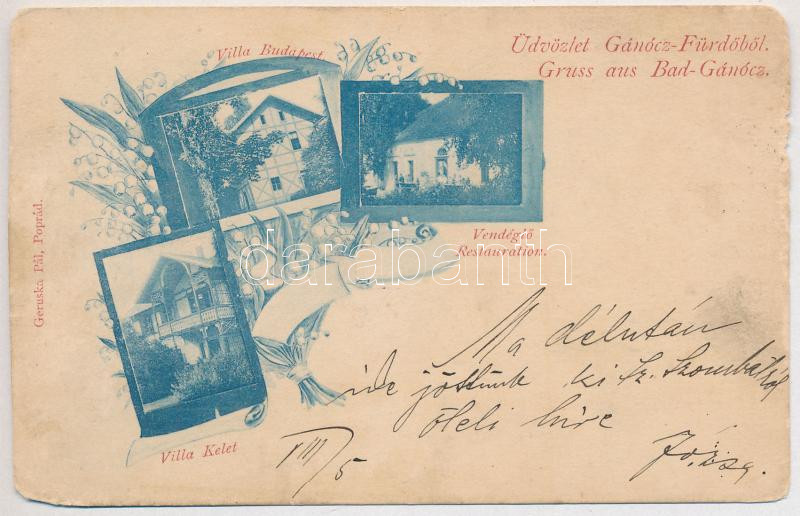 Villa Budapest.
Üdvözlet Gánócz-Fürdőből.
Gruss aus Bad-Gánócz.
Vendéglő
Restauration.
Geruska Pál, Poprád.
darabanth
Villa Kelet
Ma délután
ide jöttünk ki Sz. Szombatról
öleli híve
Józsa.
VIII/5